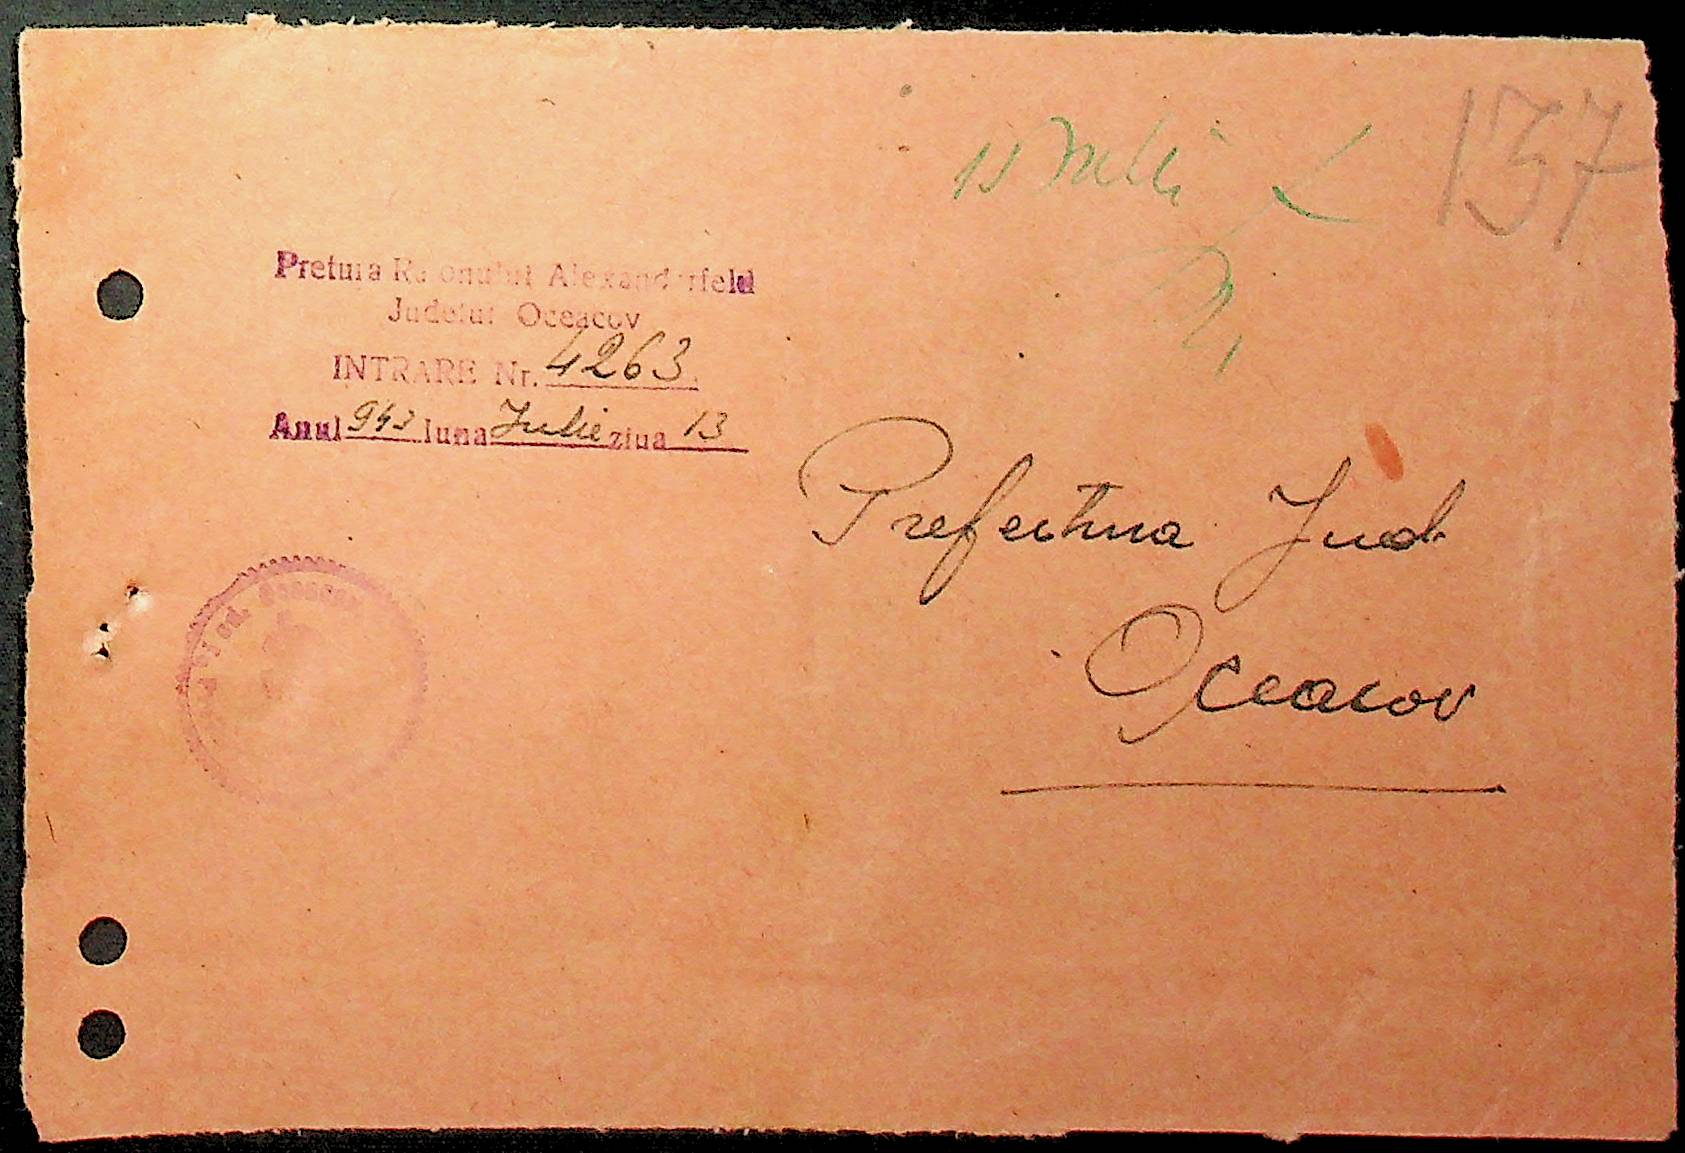 157
Pretura Raionului Alexanderfeld
Judetul Oceacov
INTRARE Nr. 4263
Anul 943 luna Iulie ziua 13
Prefectura Jud
Oceacov